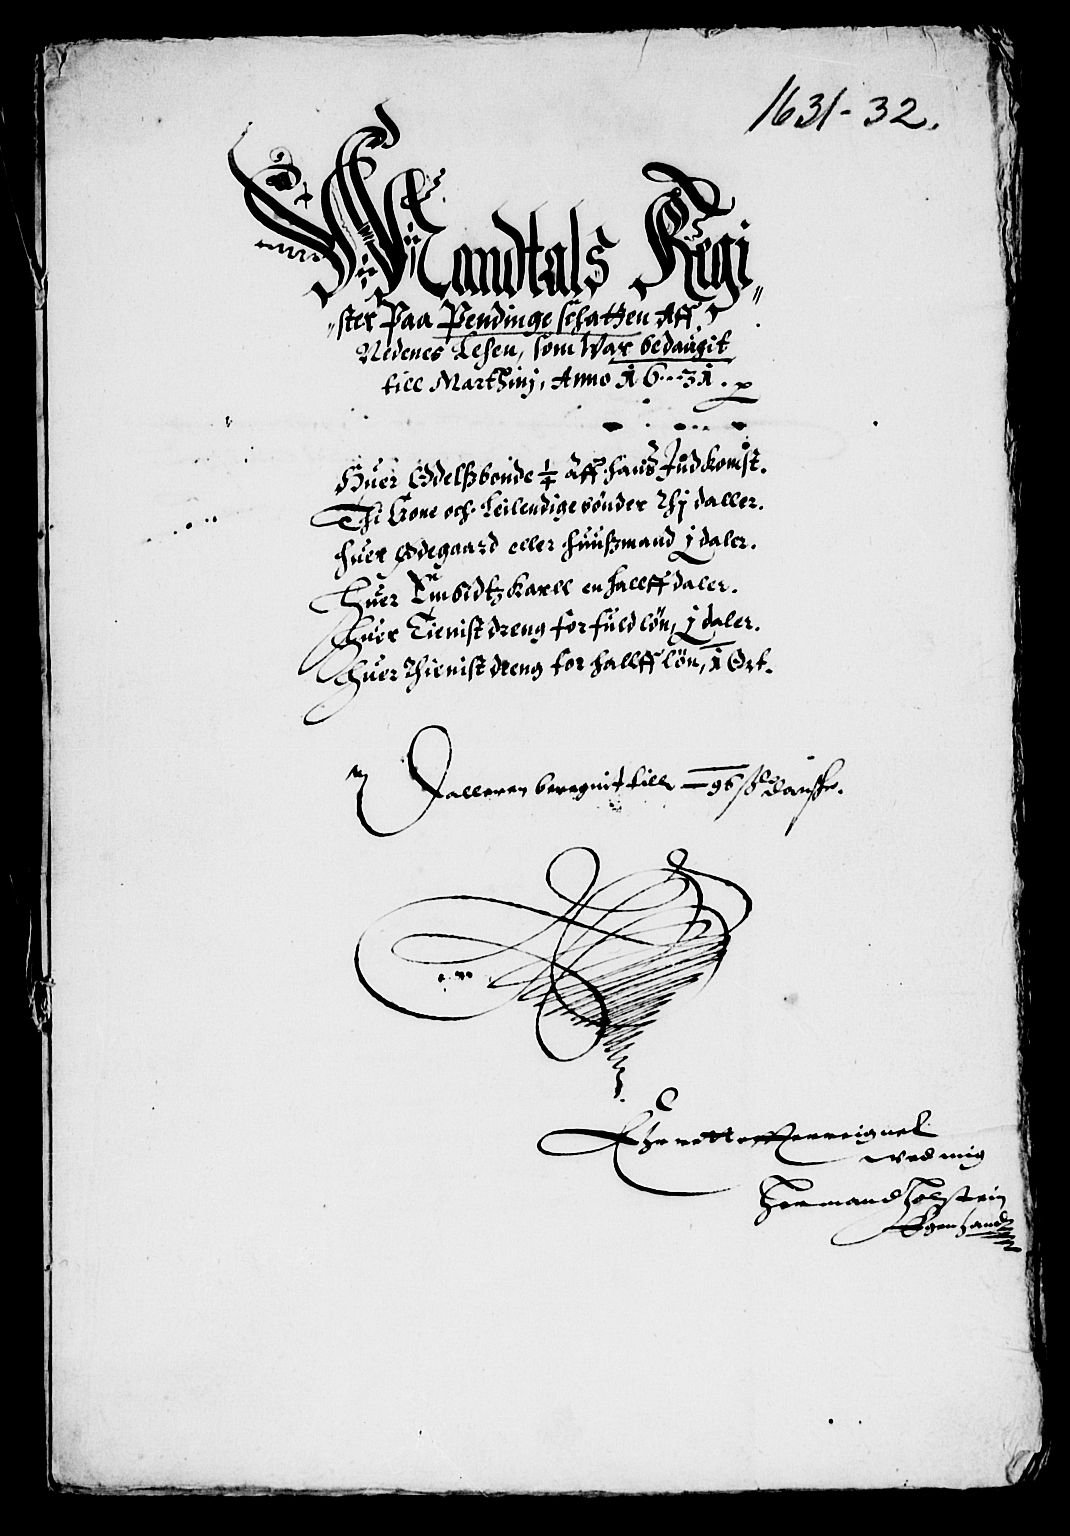 1631-32.
Mandtals Regi„
„ster Paa Pendinge schatten Aff
Nedenes Lehen, som War bedaugit
till Marthinj, Anno 16..31.
Huer Odelsbonde 1/4 aff hans Jndkomst.
Thi Gone och Leilendige bönder Thj daller.
huer Ødegaard eller huusmand j daler.
Huer Embidtz karll en hallff daler.
Huer Tienist dreng for fuld lön, j daler.
Huer Thienist dreng for hallff lön, 1 Ort.
Dalleren beregnit till 96 ß danske.
wed mig
Hermand Holstein
Egen hand